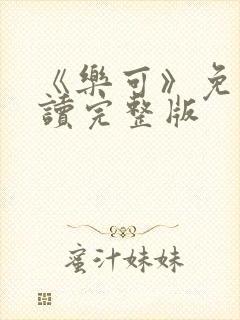 《樂可》免
讀完整版
蜜汁妹妹